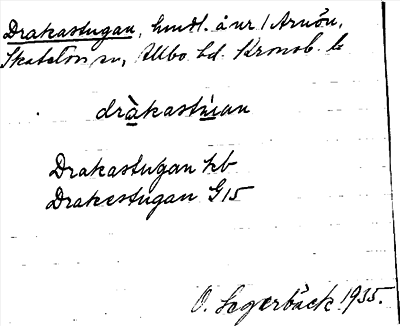 Drakastugan, hmdl. å nr 1 Arnön,
Skatelöv sn, Allbo hd. Kronob. l.
dràkastúian
Drakastugan kb
Drakestugan G15
O. Segerbäck 1935.